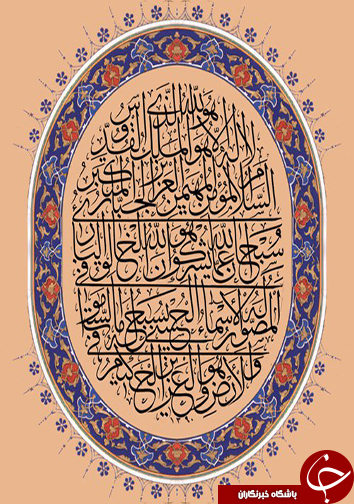 هو الله الذی
لا اله الا هو الملك القدوس
السلام المؤمن المهيمن العزيز الجبار المتكبر
سبحان الله عما يشركون هو الله الخالق البارئ
المصور له الاسماء الحسنى يسبح له ما في السماوات
والارض وهو العزيز الحكيم
باشگاه خبرنگاران